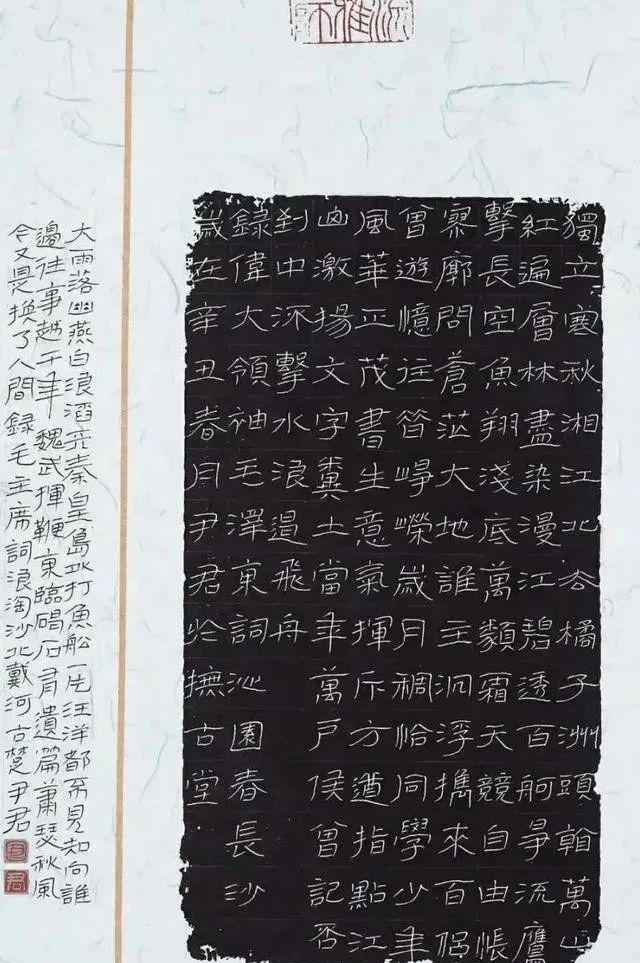 獨立寒秋湘江北去橘子洲頭看萬山
紅遍層林盡染漫江碧透百舸爭流鷹
擊長空魚翔淺底萬類霜天競自由悵
寥廓問蒼茫大地誰主沉浮攜來百侶
曾遊憶往昔崢嶸歲月稠恰同學少年
風華正茂書生意氣揮斥方遒指點江
山激揚文字糞土當年萬戶侯曾記否
到中流擊水浪遏飛舟
錄偉大領袖毛澤東詞沁園春長沙
歲在辛丑春月尹君於撫古堂
大雨落幽燕白浪滔天秦皇島外打魚船一片汪洋都不見知向誰
邊往事越千年魏武揮鞭東臨碣石有遺篇蕭瑟秋風
今又是換了人間錄毛主席詞浪淘沙北戴河古楚尹君